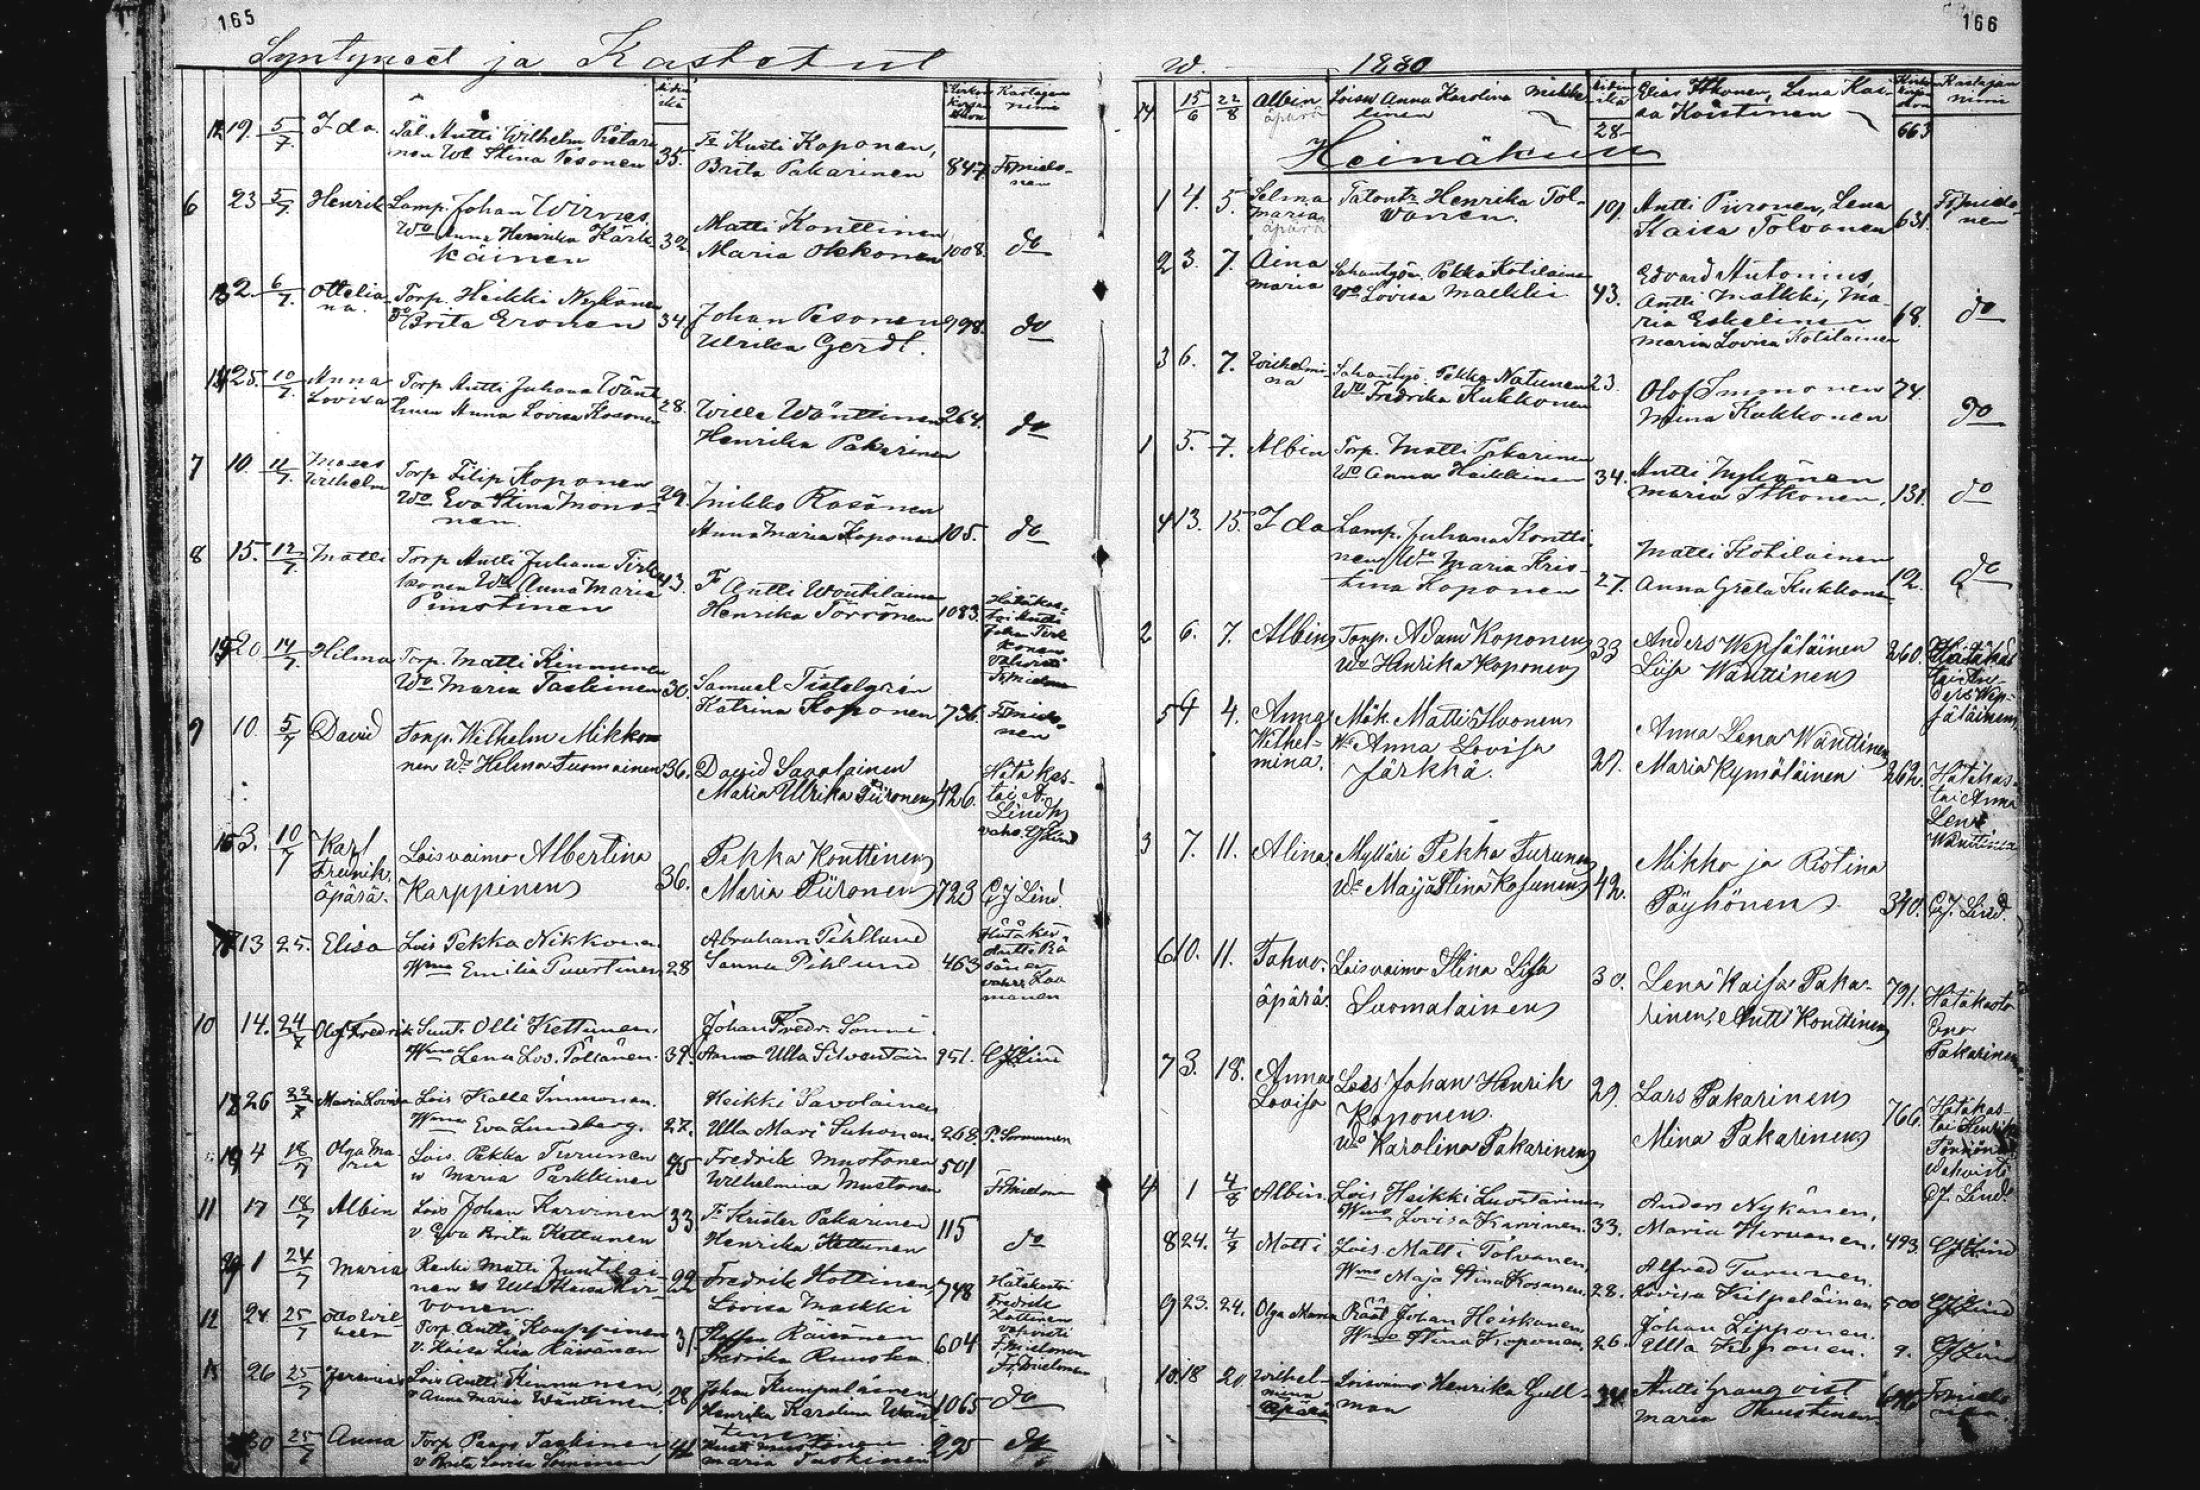 165
Syntyneet ja Kastetut
Äidin ikä
Kastajan nimi
12 19. 5/7 Ida. Täl. Antti Wilhelm Pietari-
nen Wo Stina Pesonen 35. Kusti Koponen,
Brita Pakarinen 847. F. Mielo-
nen
6 23 5/7 Henrik Lamp. Johan Wirmes.
Wo Anna Henrika Kärk-
käinen 32 Matti Konttinen
Maria Okkonen 1008. do
13 2. 6/7. Ottelia-
na. Torp. Heikki Nykänen
Wo Brita Eronen 34. Johan Pesonen 998. do
Ulrika Gerdt.
14 25. 10/7. Anna
Lovisa Torp Antti Juhana Wänt-
tinen Anna Lovisa Kosonen 28. Wille Wänttinen 264. do
Henrika Pakarinen
7 10. 11/7. Moses
Wilhelm Torp Filip Koponen
Wo Eva Stina Mono-
nen. 29. Mikko Räsänen
Anna Maria Koponen 105. do
8 15. 12/7. Matti Torp Antti Juhana Tirk-
konen Wo Anna Maria
Pimstinen 43. Antti Woutilainen
Henrika Törrönen 1083. Hätäkas-
toi Antti
Johan Tirk
konen
Vahvisti
F. Mielonen
15 20 14/7. Hilma Torp. Matti Kinnunen
Wo Maria Taskinen 30. Samuel Tistelgrén
Katrina Koponen 736. F. Mielo-
nen
9 10. 5/7 David Torp. Wilhelm Mikko-
nen Wo Helena Tuomainen 36. David Savolainen
Maria Ulrika Piironen 426. Hätä kas-
toi A.
Lindh
vahv. CJ Lind
16 3. 10/7 Karl
Fredrik.
äpärä. Loisvaimo Albertina
Karppinen 36. Pekka Konttinen
Maria Piironen 723 CJ Lind.
17 13 25. Elisa Lois Pekka Nikkonen
Wmo Emilia Puurtinen 28 Abraham Pihllund
Sanna Pihlund 463 Hätäkas
Antti Rä
sänen
vahv. Laa
manen
10 14. 24/7 Olof Fredrik Suut. Olli Kettunen.
Wmo Lena Lov. Pöllänen. 39. Johan Fredr. Sonni.
Anna Ulla Silventoin 951. CJ Lind
18 26 22/7 Maria Lovisa Lois Kalle Immonen.
Wmo Eva Lundberg. 27. Heikki Savolainen
Ulla Mari Suhonen. 268. P. Sormunen
19 4 18/7 Olga Ma-
ria Lois. Pekka Turunen
w Maria Parkkinen 45 Fredrik Mustonen 501
Wilhelmina Mustonen F. Mielonen
11 17 18/7 Albin Lois Johan Karvinen
v Eva Brita Kettunen 33 Krister Pakarinen 115
Henrika Kettunen do
1 24/7 Maria Renki Matti Juntilai-
nen w Ulla Kaisa Hir-
vonen. 22 Fredrik Hottinen, 748
Lovisa Maekki Hätäkasti
Fredrik
Hottinen
vahvisti
F. Mielonen
12 24 25/7 Otto Wil-
helm Torp. Antti Kauppinen
v. Kaisa Lisa Räisänen 31. Staffan Räisänen
Fredrika Ruuska. 604 F. Mielonen
13 26 25/7 Jeremias Lois Antti Kinnunen.
v Anna Maria Wänttinen. 28 Johan Rumpulainen
Henrika Karolina Wänt-
tinen. 1065 do
30 25/7 Anna Torp Paavo Taskinen
v Brita Lovisa Sorsunen 41 Kusti Mustonen
Maria Taskinen 295 do
166
w. 1880
14 15/6 22/8 Albin
äpärä Loisw Anna Karolina Mikke-
linen Äidin ikä
28 Elias Itkonen, Lena Kai-
sa Koistinen 663 Kastajan nimi
Heinäkuu
1 4. 5. Selma
Maria
äpärä Talontr Henrika Tol-
wanen. 19. Antti Piironen, Lena
Kaisa Tolvanen 631. F. Mielo-
nen
2 3. 7. Aina
Maria Sahantyöm. Pekka Kotilainen
Wo Lovisa Maekki 43. Edvard Antonius,
Antti Matkki, Ma-
ria Eskelinen
Maria Lovisa Kotilainen 68. do
3 6. 7. Wilhelmi-
na Sahantyö. Pekka Natunen
Wo Fredrika Kukkonen 23. Olof Immonen
Mina Kukkonen 74. do
1 5. 7. Albin Torp. Matti Pakarinen
Wo Anna Heikkinen 34. Antti Nykänen
Maria Itkonen. 131. do
4 13. 15. Ida Lamp. Juhana Kontti-
nen Wo Maria Kris-
tina Koponen 27. Matti Kotilainen
Anna Greta Kukkonen 12. do
2 6. 7. Albin Torp. Adam Koponen
Wo Henrika Koponen 33 Anders Wepsäläinen
Liisa Wänttinen 260. Hätäkas
toi An-
ders Wep-
säläinen
5 4 4. Anna
Wilhel-
mina. Mök Matti Huonen
Wo Anna Lovisa
Järkkä. 27. Anna Lena Wänttinen
Maria Kymäläinen 262. Hätäkas-
toi Anna
Lena
Wänttinen
3 7. 11. Alina Mylläri Pekka Turunen
Wo Maija Stina Kosunen 42. Mikko ja Ristina
Pöyhönen 340. CJ. Lind.
6 10. 11. Tahvo.
äpärä. Loisvaimo Stina Liisa
Suomalainen 30. Lena Kaisa Paka-
rinen, Antti Konttinen 791. Hätäkasto
Eva
Pakarinen
7 3. 18. Anna
Lovisa Lois Johan Henrik
Koponen.
Wo Karolina Pakarinen 29. Lars Pakarinen
Mina Pakarinen 766. Hätäkas-
toi Henrik
Törrönen
Vahvisti
CJ. Lind.
4 1 4/8 Albin. Lois Heikki Luostarinen
Wmo Lovisa Karvinen. 33. Anders Nykänen,
Maria Hirvonen. 493. CJ Lind
8 24. 4/8 Matti Lois. Matti Tolvanen.
Wmo Maja Stina Kosanen. 28. Alfred Turunen.
Lovisa Kilpeläinen 500 CJ Lind
9 23. 24. Olga Maria Räät Johan Heiskanen
Wmo Stina Koponen. 26. Johan Lipponen.
Ulla Koponen. 9. CJ Lind
10 18 20. Wilhel-
mina
äpärä Loisvaimo Henrika Gull-
man 34. Antti Granqvist
Maria Huustinen. F. Mielo-
nen.